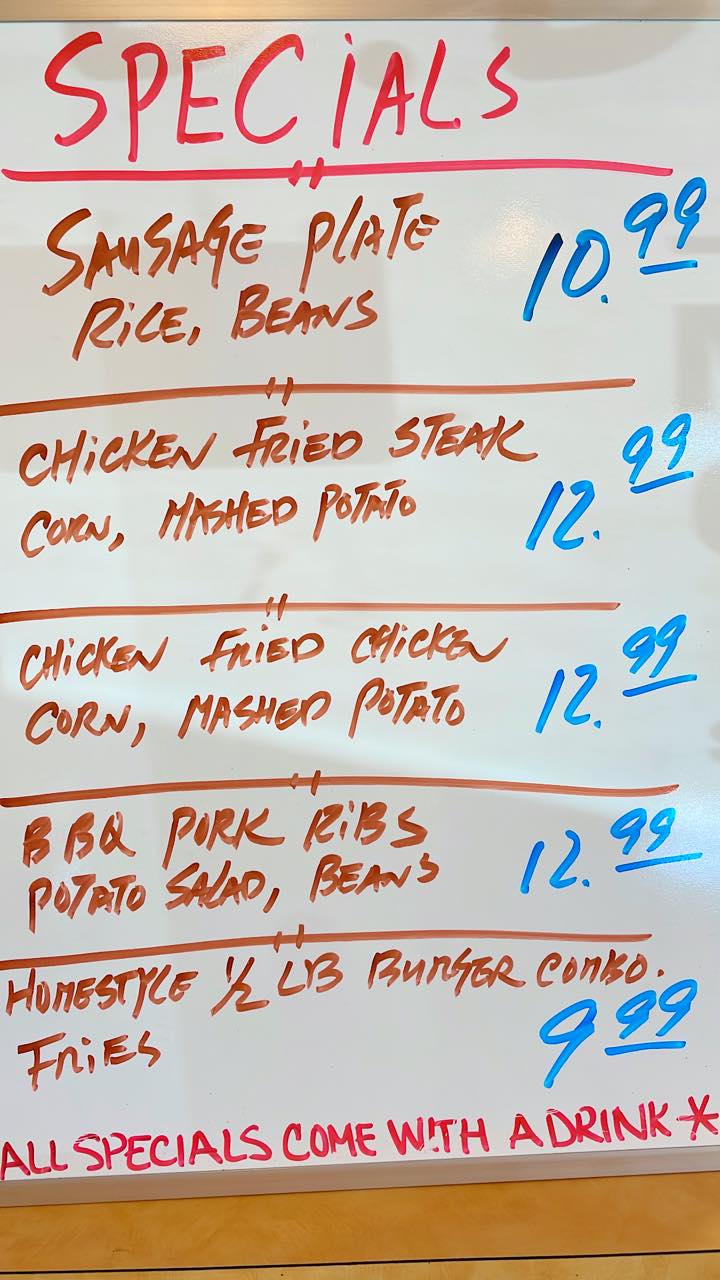 SPECIALS
SAUSAGE PLATE 10.99
RICE, BEANS
CHICKEN FRIED STEAK 12.99
CORN, MASHED POTATO
CHICKEN FRIED CHICKEN 12.99
CORN, MASHED POTATO
BBQ PORK RIBS 12.99
POTATO SALAD, BEANS
HOMESTYLE 1/2 LB BURGER COMBO.
FRIES 9 99
ALL SPECIALS COME WITH A DRINK *